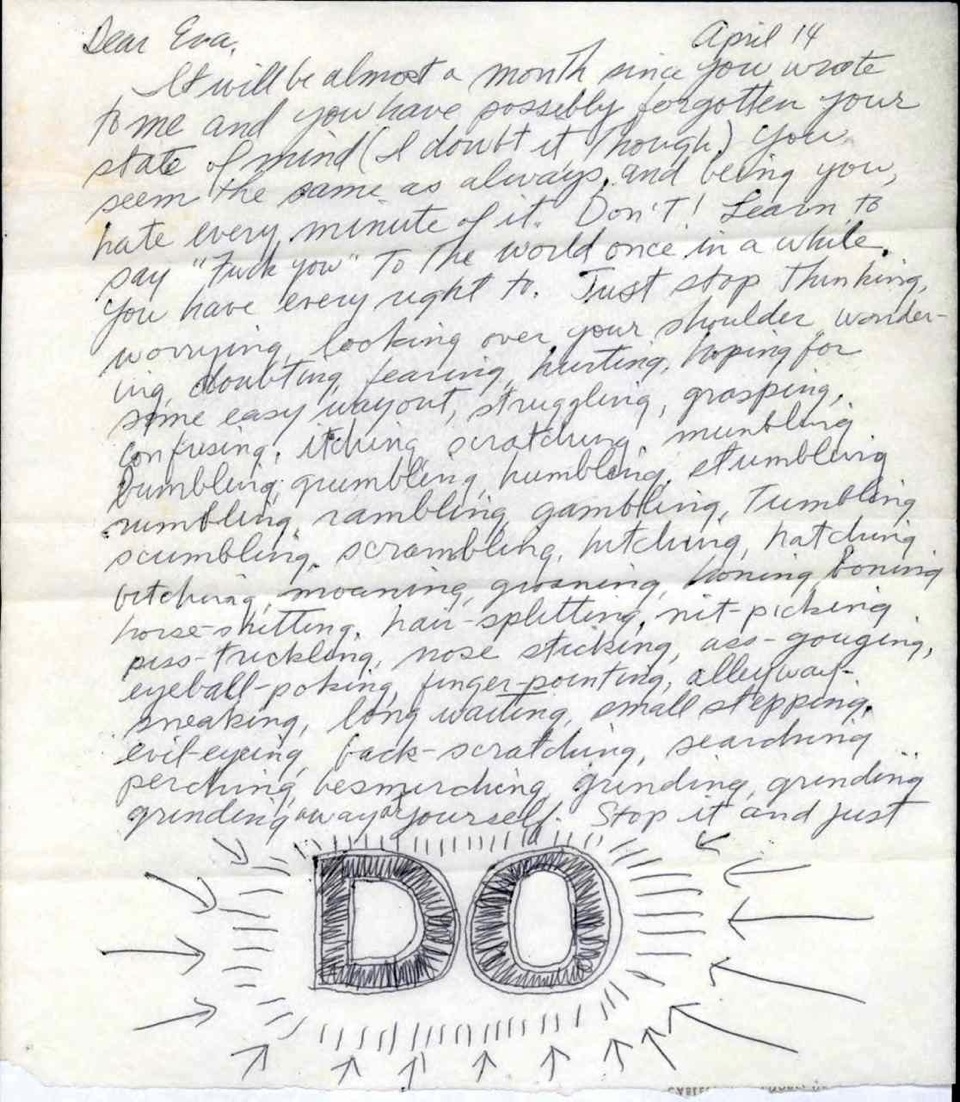 Dear Eva,
April 14
It will be almost a month since you wrote
to me and you have possibly forgotten your
state of mind (I doubt it though). You
seem the same as always, and being you,
hate every minute of it. Don't! Learn to
say "Fuck You" to the world once in a while.
You have every right to. Just stop thinking,
worrying, looking over your shoulder, wonder-
ing, doubting, fearing, hurting, hoping for
some easy way out, struggling, grasping,
confusing, itching, scratching, mumbling,
bumbling, grumbling, humbling, stumbling,
rumbling, rambling, gambling, tumbling,
scumbling, scrambling, hitching, hatching,
bitching, moaning, groaning, honing, boning,
horse-shitting, hair-splitting, nit-picking,
piss-trickling, nose sticking, ass-gouging,
eyeball-poking, finger-pointing, alleyway-
sneaking, long waiting, small stepping,
evil-eyeing, back-scratching, searching,
perching, besmirching, grinding, grinding
grinding away at yourself. Stop it and just
DO